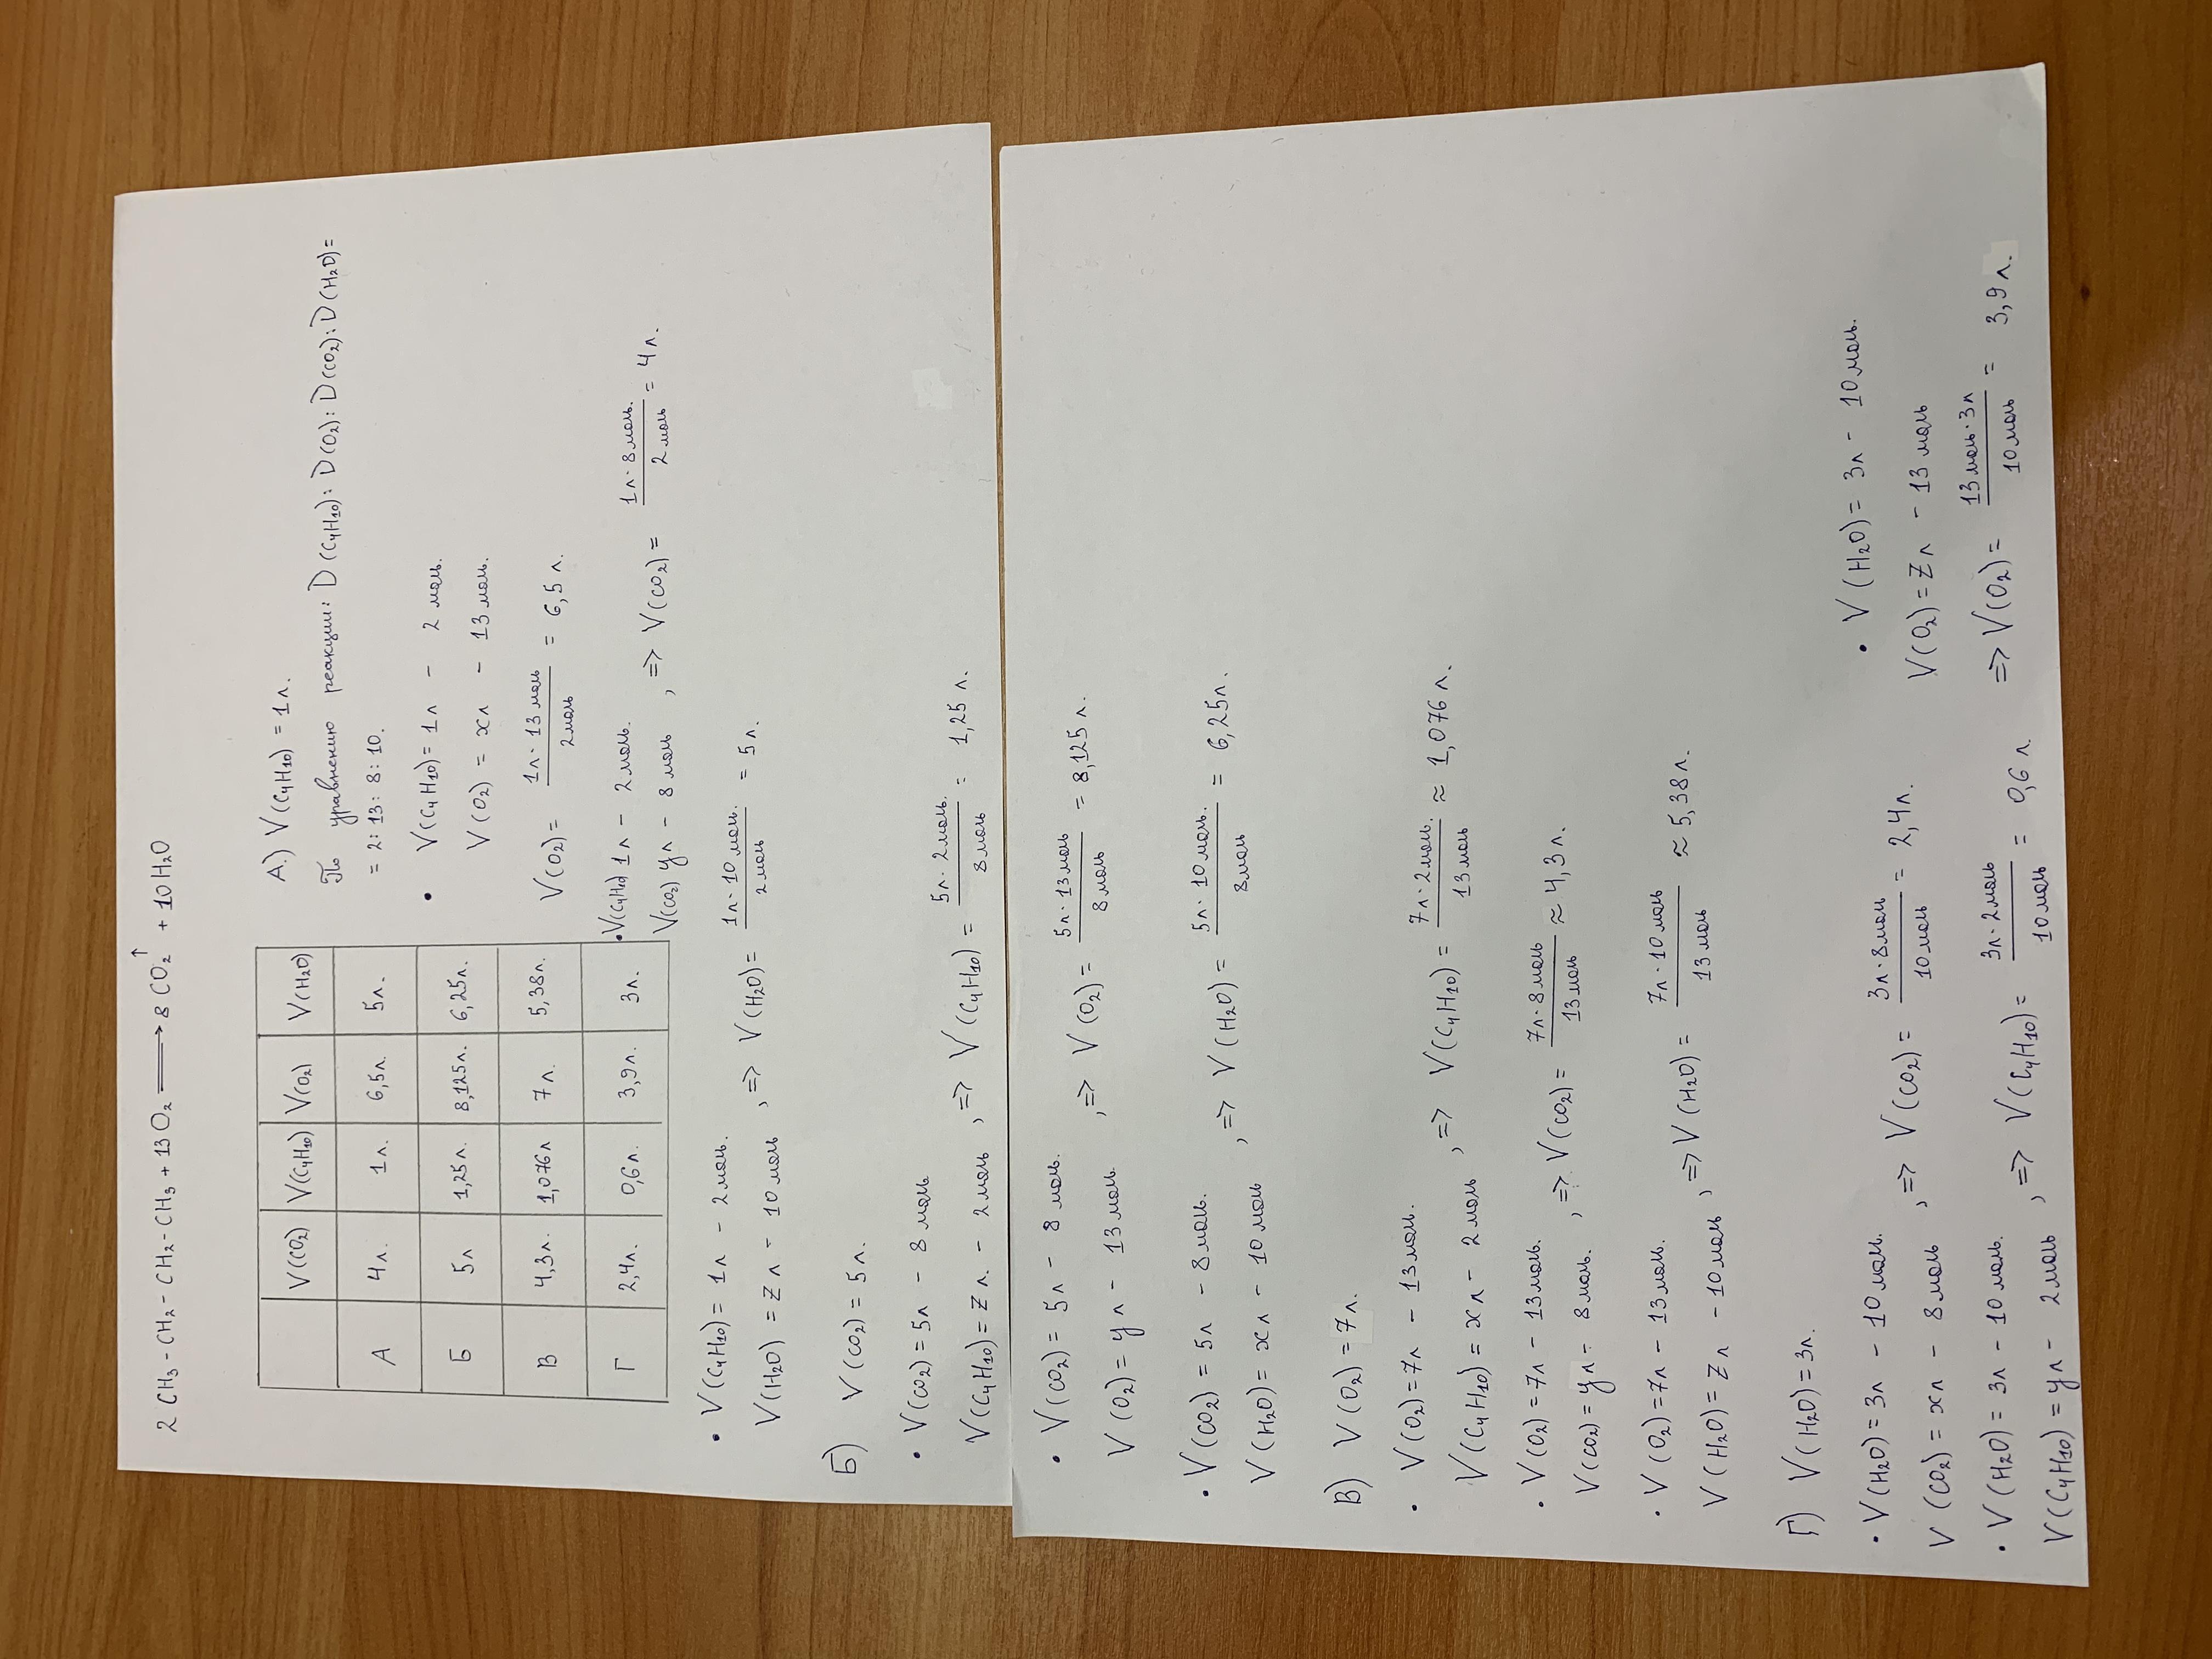 2 CH₃ - CH₂ - CH₂ - CH₃ + 13 O₂ ⟶ 8 CO₂↑ + 10 H₂O
V(CO₂) V(C₄H₁₀) V(O₂) V(H₂O)
А 4 л. 1 л. 6,5 л. 5 л.
Б 5 л 1,25 л. 8,125 л. 6,25 л.
В 4,3 л. 1,076 л 7 л. 5,38 л.
Г 2,4 л. 0,6 л. 3,9 л. 3 л.
А.) V(C₄H₁₀) = 1 л.
По уравнению реакции: D(C₄H₁₀) : D(O₂) : D(CO₂) : D(H₂O) =
= 2 : 13 : 8 : 10.
• V(C₄H₁₀) = 1 л - 2 моль.
V(O₂) = x л - 13 моль.
V(O₂) = 1 л · 13 моль / 2 моль = 6,5 л.
• V(C₄H₁₀) 1 л - 2 моль.
V(CO₂) y л - 8 моль , => V(CO₂) = 1 л · 8 моль. / 2 моль = 4 л.
• V(C₄H₁₀) = 1 л - 2 моль.
V(H₂O) = z л - 10 моль , => V(H₂O) = 1 л · 10 моль. / 2 моль = 5 л.
Б) V(CO₂) = 5 л.
• V(CO₂) = 5 л - 8 моль
V(C₄H₁₀) = z л. - 2 моль , => V(C₄H₁₀) = 5 л · 2 моль. / 8 моль = 1,25 л.
• V(CO₂) = 5 л - 8 моль.
V(O₂) = y л - 13 моль , => V(O₂) = 5 л · 13 моль / 8 моль = 8,125 л.
• V(CO₂) = 5 л - 8 моль.
V(H₂O) = x л - 10 моль , => V(H₂O) = 5 л · 10 моль. / 8 моль = 6,25 л.
В) V(O₂) = 7 л.
• V(O₂) = 7 л - 13 моль.
V(C₄H₁₀) = x л - 2 моль , => V(C₄H₁₀) = 7 л · 2 моль. / 13 моль ≈ 1,076 л.
• V(O₂) = 7 л - 13 моль.
V(CO₂) = y л - 8 моль. , => V(CO₂) = 7 л · 8 моль / 13 моль ≈ 4,3 л.
• V(O₂) = 7 л - 13 моль.
V(H₂O) = z л - 10 моль , => V(H₂O) = 7 л · 10 моль / 13 моль ≈ 5,38 л.
Г) V(H₂O) = 3 л.
• V(H₂O) = 3 л - 10 моль.
V(CO₂) = x л - 8 моль , => V(CO₂) = 3 л · 8 моль / 10 моль = 2,4 л.
• V(H₂O) = 3 л - 10 моль.
V(C₄H₁₀) = y л - 2 моль , => V(C₄H₁₀) = 3 л · 2 моль / 10 моль = 0,6 л
• V(H₂O) = 3 л - 10 моль.
V(O₂) = z л - 13 моль
=> V(O₂) = 13 моль · 3 л / 10 моль = 3,9 л.